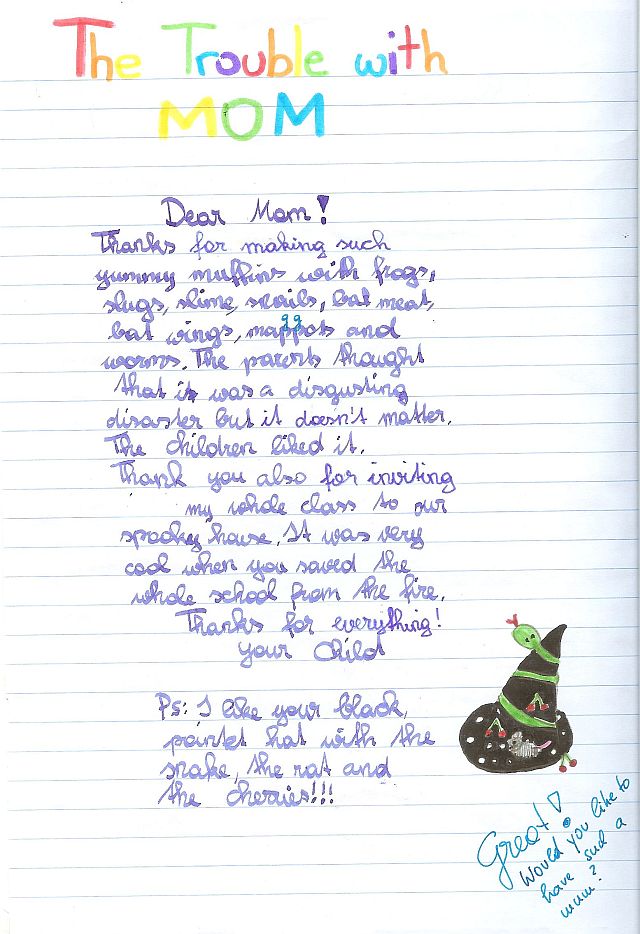 The Trouble with
MOM
Dear Mom!
Thanks for making such
yummy muffins with frogs,
slugs, slime, snails, bat meat,
bat wings, maggots and
worms. The parents thought
that it was a disgusting
disaster but it doesn't matter.
The children liked it.
Thank you also for inviting
my whole class to our
spooky house. It was very
cool when you saved the
whole school from the fire.
Thanks for everything!
Your Child
Ps: I like your black,
pointet hat with the
snake, the rat and
the cherries!!!
Great!
Would you like to
have such a
mum?